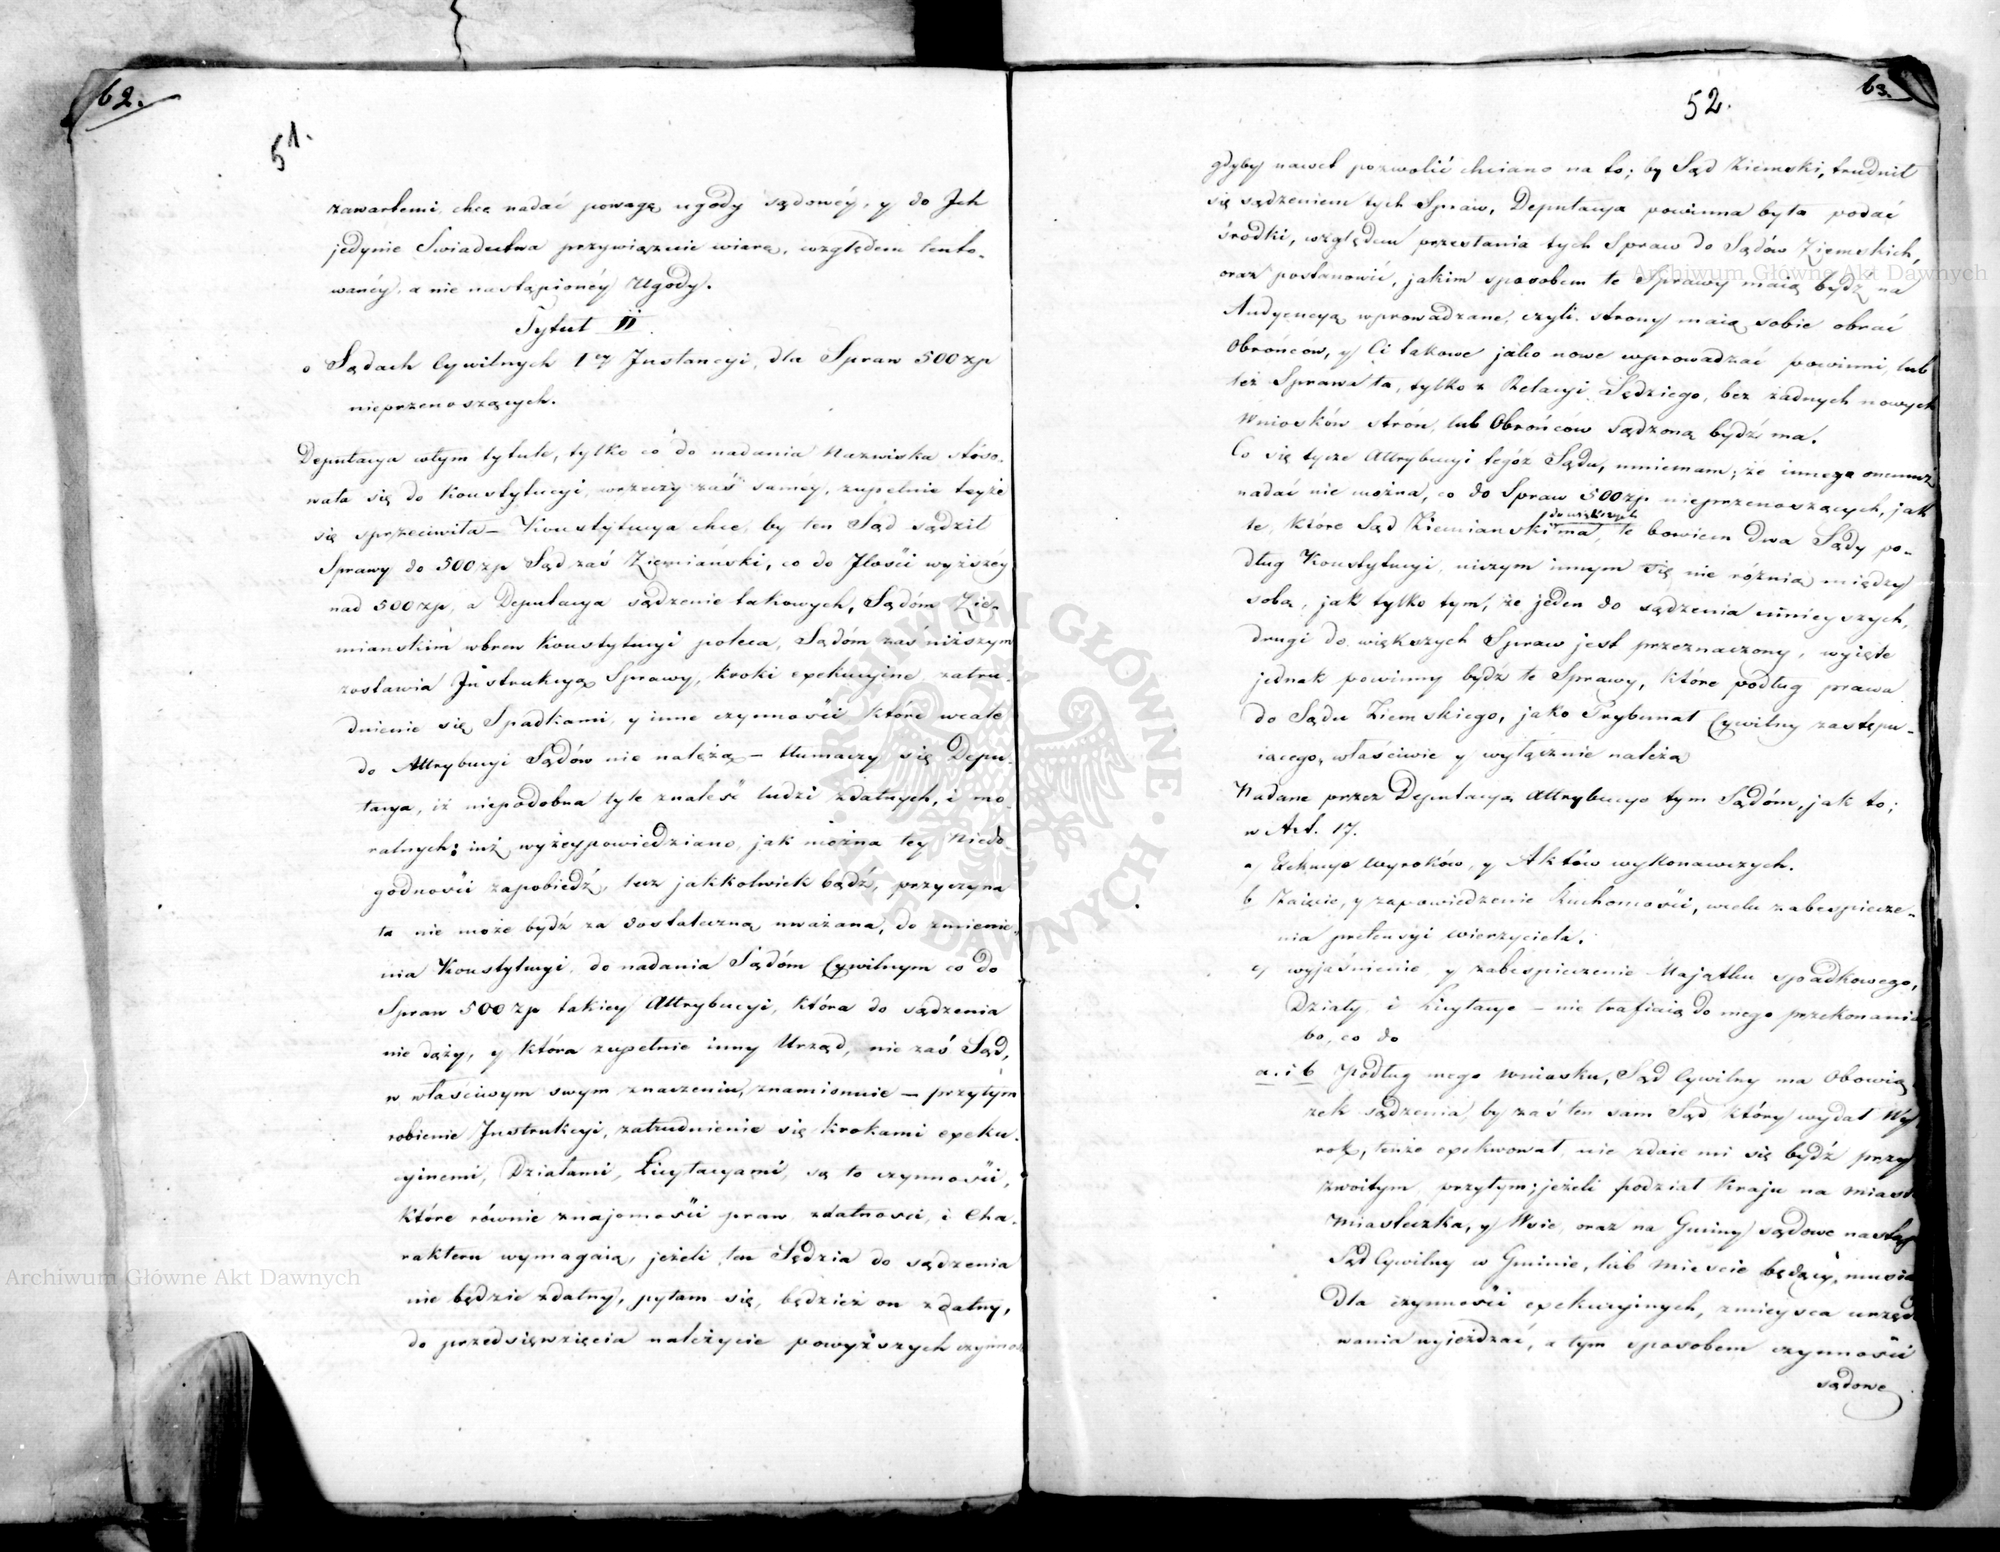 62.
51.
zawartemi, chce nadać powagę ugody sądowéy, y do Ich
jedynie Swiadectwa przywiązuie wiarę, względem tento-
wanéy, a nie nastąpionéy Ugody.
Tytuł II
o Sądach Cywilnych 1ey Instancyi, dla Spraw 500 zp
nieprzenoszących.
Deputacya wtym tytule, tylko co do nadania Nazwiska stóso-
wała się do Konstytucyi, wrzeczy zaś samey, zupełnie teyże
się sprzeciwiła – Konstytucya chce, by ten Sąd sądził
Sprawy do 500 zp Sąd zaś Ziemiański, co do Ilości wyższéy
nad 500 zp, a Deputacya sądzenie takowych, Sądóm Zie-
mianskim wbrew Konstytucyi poleca, Sądóm zaś niższym
zostawia Instrukcyą Sprawy, kroki exekucyine, zatru-
dnienie się Spadkami, y inne czynności które wcale
do Attrybucyi Sądów nie należą – tłumaczy się Depu-
tacya, iż niepodobna tyle znaleść ludzi zdatnych, i mo-
ralnych; iuż wyżeypowiedziano, jak można tey Niedo-
godności zapobiedź, lecz jakkolwiek bądź, przyczyna
ta nie może bydź za dostateczną uważana, do zmienie-
nia Konstytucyi, do nadania Sądóm Cywilnym co do
Spraw 500 zp takiey Attrybucyi, która do sądzenia
nie dąży, y która zupełnie inny Urząd, nie zaś Sąd,
w właściwym swym znaczeniu, znamionuie – przytym
robienie Instrukcyi, zatrudnienie się krokami exeku-
cyinemi, Działami, Licytacyami, są to czynności,
które równie znajomości praw, zdatności, i Cha-
rakteru wymagaią, jeżeli ten Sędzia do sądzenia
nie będzie zdatny, pytam się, będzież on zdatny,
do przedsięwzięcia należycie powyższych czynno
63.
52.
gdyby nawet pozwolić chciano na to; by Sąd Ziemski, trudnił
się sądzeniem tych Spraw, Deputacya powinna była podać
środki, względem przesłania tych Spraw do Sądów Ziemskich,
oraz postanowić, jakim sposobem te Sprawy maią bydź na
Audyencyą wprowadzane, czyli strony maią sobie obrać
Obrońców, y Ci takowe jako nowe wprowadzać powinni, lub
też Sprawa ta, tylko z Relacyi Sędziego, bez żadnych nowych
Wniosków strón, lub Obrońców sądzoną bydź ma.
Co się tycze Attrybucyi tegóż Sądu, mniemam, że innega onemuż
nadać nie można, co do Spraw 500 zp nieprzenoszących, jak
do większych
te, które Sąd Ziemianski ma, te bowiem Dwa Sądy po-
dług Konstytucyi, niczym innym się nie różnią między
sobą, jak tylko tym, że jeden do sądzenia mnieyszych,
drugi do większych Spraw jest przeznaczony, wyięte
jednak powinny bydź te Sprawy, które podług prawa
do Sądu Ziemskiego, jako Trybunał Cywilny zastępu-
iącego, właściwie y wyłącznie należą
Nadane przez Deputacyą Attrybucye tym Sądóm, jak to;
w Art. 17.
a) Exekucye Wyroków, y Aktów wykonawczych.
b Zaięcie, y zapowiedzenie Ruchomości, wcelu zabespiecze-
nia pretensyi Wierzyciela.
c) wyjaśnienie, y zabespieczenie Majątku spadkowego,
Działy i Licytacye – nie trafiaią do mego przekonania
bo, co do
a. i b Podług mego Wniosku, Sąd Cywilny ma Obowią
zek sądzenia, by zaś ten sam Sąd który wydał Wy
rok, tenże exekwował, nie zdaie mi się bydź przy
zwoitym, przytym; jeżeli podział Kraju na Miast
Miasteczka, y Wsie, oraz na Gminy sądowe nastąp
Sąd Cywilny w Gminie, lub Miescie będący, musia
dla czynności exekucyinych, zmieysca urzędo
wania wyjeżdzać, a tym sposobem czynności
sądowe
Archiwum Główne Akt Dawnych
Archiwum Główne Akt Dawnych
ARCHIWUM GŁÓWNE AKT DAWNYCH